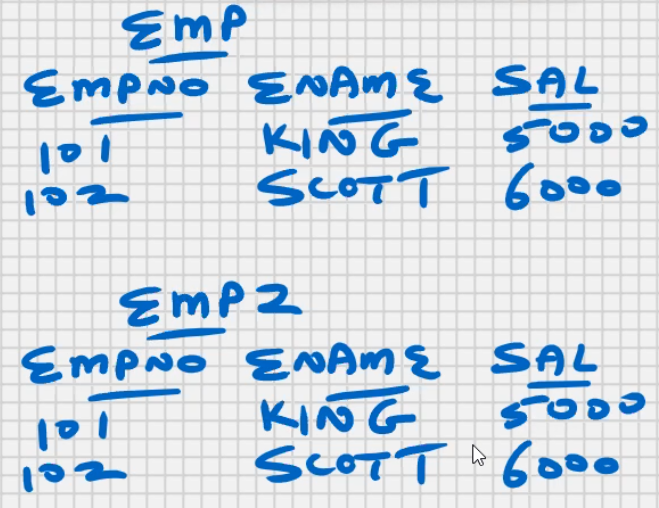 EMP
EMPNO ENAME SAL
101 KING 5000
102 SCOTT 6000
EMP2
EMPNO ENAME SAL
101 KING 5000
102 SCOTT 6000